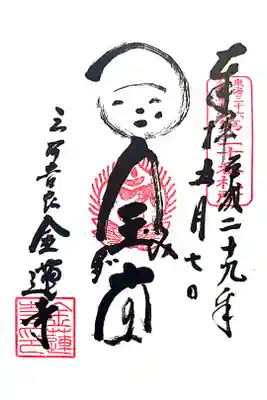 奉拝 平成二十九年
五月七日
みだ
堂
三河吉良 金蓮寺
金蓮
寺印